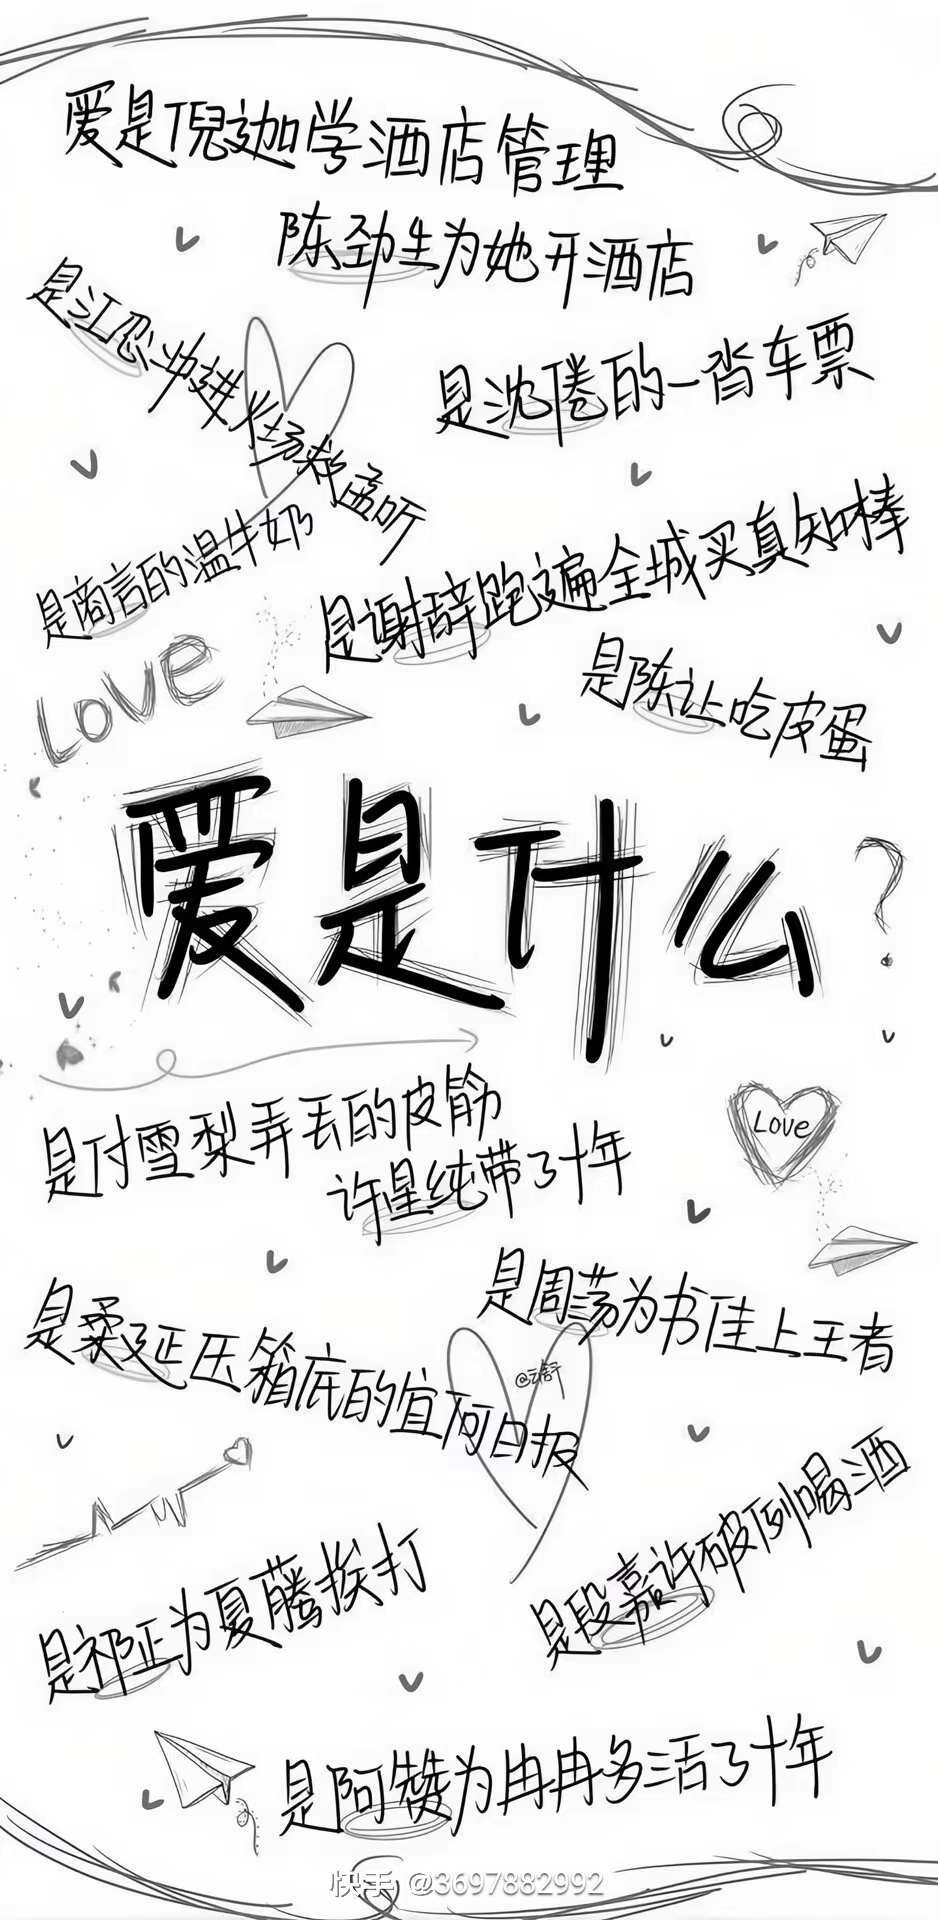 爱是倪迦学酒店管理
陈劲生为她开酒店
是江忍冲进火场救孟听
是沈倦的一沓车票
是商言的温牛奶
是谢辞跑遍全城买真知棒
LOVe
是陈让吃皮蛋
爱是什么?
是付雪梨弄丢的皮筋
许星纯带了十年
Love
是周荡为书佳上王者
是柔延压箱底的宜阿日报
是祁正为夏藤挨打
是段嘉许破例喝酒
是阿赞为冉冉多活了十年
快手 @3697882992